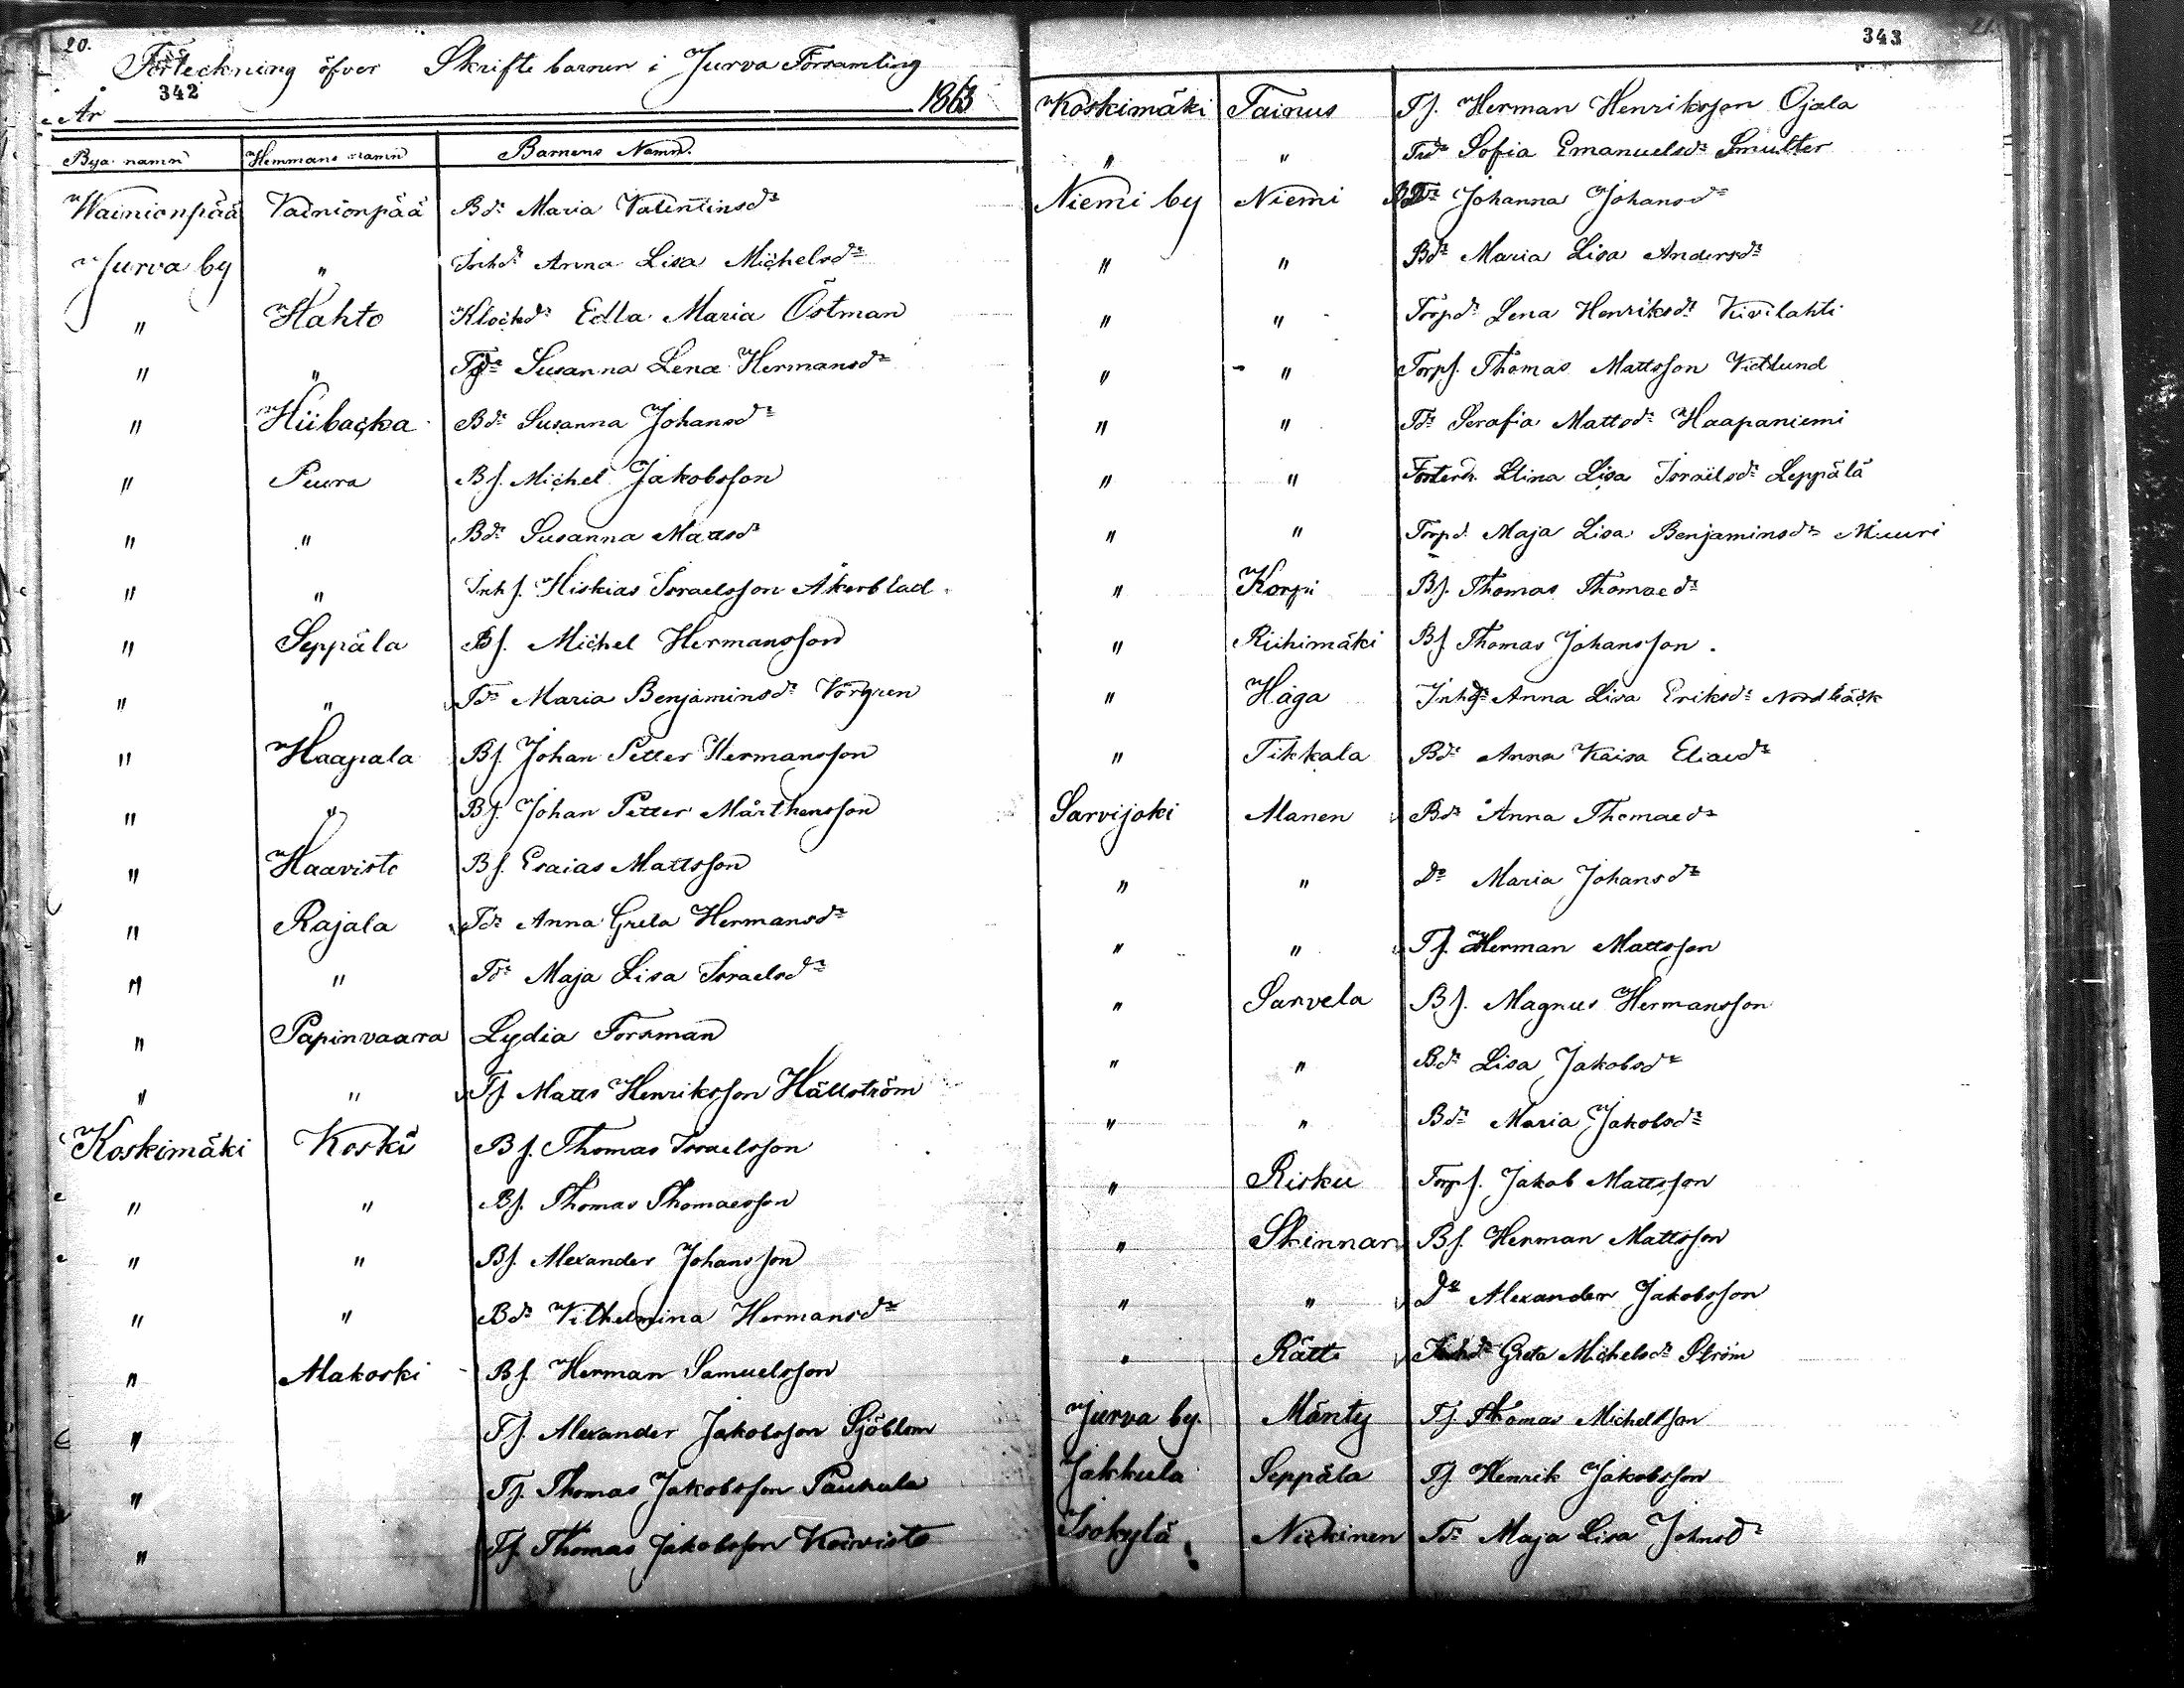 20.
Förteckning öfver Skriftebarnen i Jurva Församling
342
År 1863
Bya namn Hemmans namn Barnens Namn.
Wainionpää Vainionpää Bdr Maria Valentinsdr
Jurva by " Inhdr Anna Lisa Michelsdr
" Hahto Klockdr Edla Maria Östman
" " Tdr Susanna Lena Hermansdr
" Hiibacka Bdr Susanna Johansdr
" Peura Bs. Michel Jakobsson
" " Bdr Susanna Mattsdr
" " Inhs. Hiskias Israelsson Åkerblad
" Seppäla Bs. Michel Hermansson
" " Tdr Maria Benjaminsdr Vörgren
" Haapala Bs. Johan Petter Hermansson
" " Bs. Johan Petter Mårthensson
" Haavisto Bs. Esaias Mattsson
" Rajala Tdr Anna Greta Hermansdr
" " Tdr Maja Lisa Israelsdr
" Papinvaara Lydia Forsman
" " Ts. Matts Henriksson Hällström
Koskimäki Koski Bs. Thomas Israelsson
" " Bs. Thomas Thomaesson
" " Bs. Alexander Johansson
" " Bdr Vilhelmina Hermansdr
" Alakoski Bs. Herman Samuelsson
" Ts. Alexander Jakobsson Sjöblom
" Ts. Thomas Jakobsson Paukula
" Ts. Thomas Jakobsson Koivisto
343 21.
Koskimäki Tainus Ts. Herman Henriksson Ojala
" " Tdr Sofia Emanuelsdr Smulter
Niemi by Niemi Bdr Johanna Johansdr
" " Bdr Maria Lisa Andersdr
" " Torpdr Lena Henriksdr Viivilahti
" " Torps. Thomas Mattsson Vidlund
" " Tdr Serafia Mattsdr Haapaniemi
" " Fosterd. Elina Lisa Israelsdr Leppälä
" " Torpd. Maja Lisa Benjaminsdr Muuri
" Korpi Bs. Thomas Thomaedr
" Riihimäki Bs Thomas Johansson.
" Håga Inhdr Anna Lisa Eriksdr Nordbäck
" Tikkala Bdr Anna Kaisa Eliaedr
Sarvijoki Alanen Bdr Anna Thomaedr
" " Do Maria Johansdr
" " Ts. Herman Mattsson
" Sarvela Bs. Magnus Hermansson
" " Bdr Lisa Jakobsdr
" " Bdr Maria Jakobsdr
" Risku Torps. Jakob Mattsson
" Skinnar Bs. Herman Mattsson
" " Do Alexander Jakobsson
" Rätti Inhdr Greta Michelsdr Ström
Jurva by Mänty Ts. Thomas Michelsson
Jakkula Seppäla Ts Henrik Jakobsson
Isokylä Niskinen Tdr Maja Lisa Johnsdr